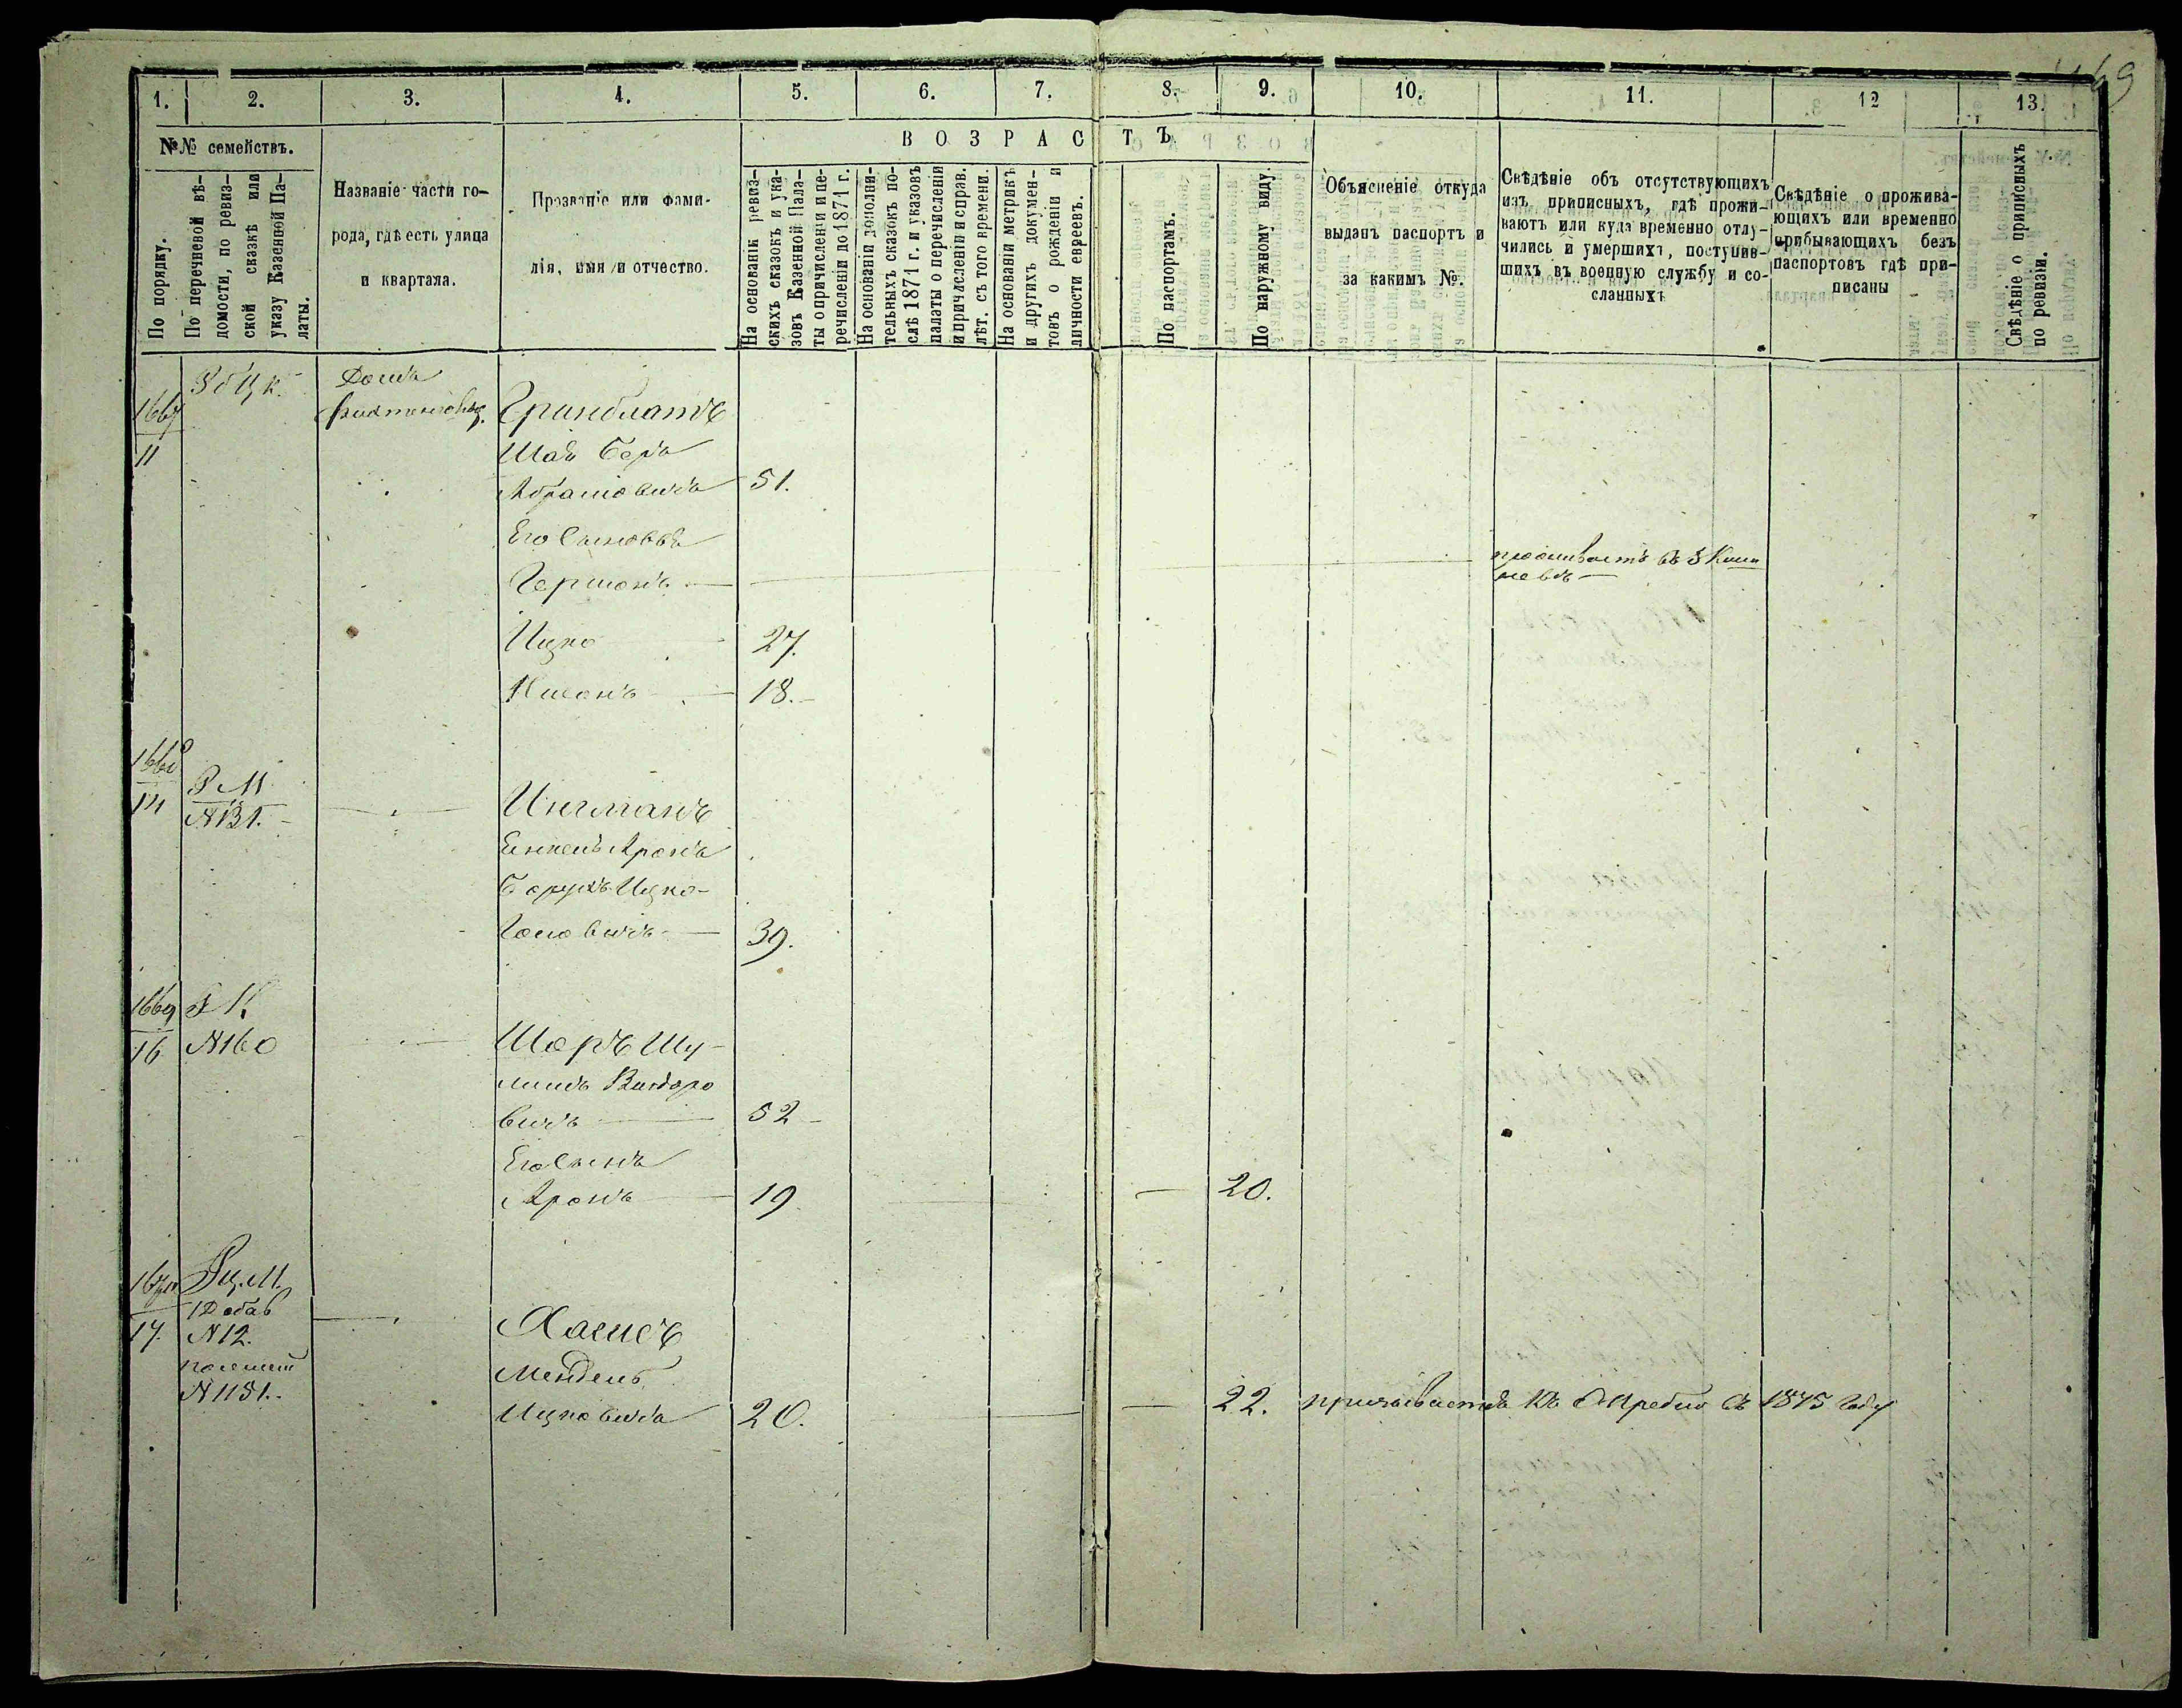 469
1. 2. 3. 4. 5. 6. 7. 8. 9. 10. 11. 12 13.
№№ семействъ.
По порядку.
По перечневой вѣ-
домости, по ревиз-
ской сказкѣ или
указу Казенной Па-
латы.
Названіе части го-
рода, гдѣ есть улица
и квартала.
Прозваніе или фами-
лія, имя и отчество.
ВОЗРАСТЪ
На основаніи ревиз-
скихъ сказокъ и ука-
зовъ Казенной Пала-
ты о причисленіи и пе-
речисленіи по 1871 г.
На основаніи дополни-
тельныхъ сказокъ по-
слѣ 1871 г. и указовъ
палаты о перечисленіи
и причисленіи и справ.
лѣт. съ того времени.
На основаніи метрикъ
и другихъ докумен-
товъ о рожденіи и
личности евреевъ.
По паспортамъ.
По наружному виду.
Объясненіе откуда
выданъ паспортъ и
за какимъ №.
Свѣдѣніе объ отсутствующихъ
изъ приписныхъ, гдѣ прожи-
ваютъ или куда временно отлу-
чились и умершихъ, поступив-
шихъ въ военную службу и со-
сланныхъ
Свѣдѣніе о прожива-
ющихъ или временно
прибывающихъ безъ
паспортовъ гдѣ при-
писаны
Свѣдѣніе о приписныхъ
по ревизіи.
1667
11
Домъ
Гринблатъ
Шая Беръ
Абрамовичъ 51.
Его Сыновья
Гершонъ — проживаетъ въ г Киши
невѣ —
Ицко 27.
Нисонъ 18.
1668
14
Р М
N 131.
Ингманъ
Енкель Аронъ
Борухъ Ицко-
39.
1669
16
Р К
N 160
Шоръ Шу-
лимъ
вичъ 52
Его Сынъ
Аронъ 19 — 20.
1670
17.
Р.ц.М.
1 Добав
N 12.
N 1151.
Хаимъ
Мендель
Ицковичъ 20. — 22. призывается къ жребію въ 1875 году